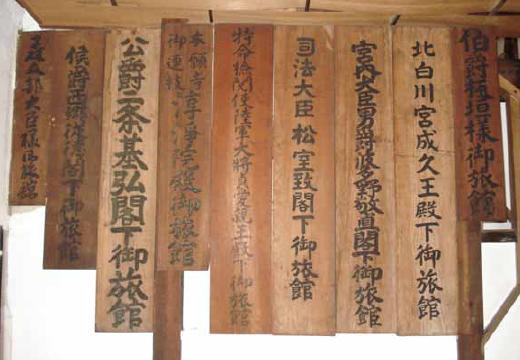 伯爵板垣様御旅館
北白川宮成久王殿下御旅館
宮内大臣男爵波多野敬直閣下御旅館
司法大臣 松室致閣下御旅館
特命検閲使陸軍大将貞愛親王殿下御旅館
本願寺
御連枝
院殿御旅館
公爵二条基弘閣下御旅館
侯爵閣下御旅館
大臣様御旅館